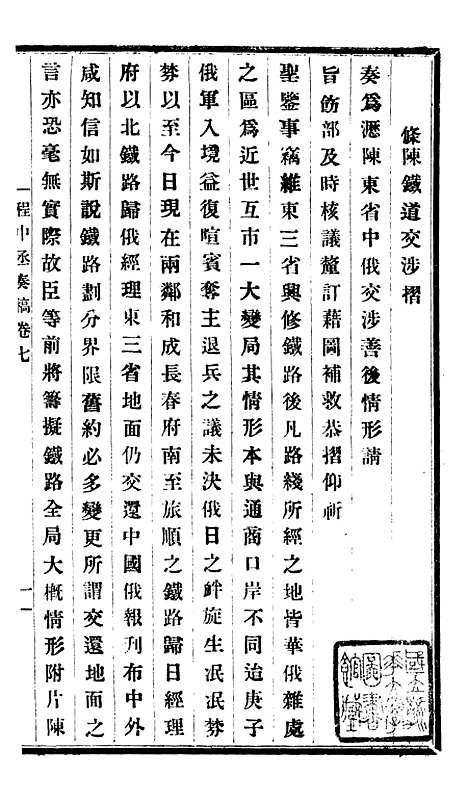 條陳鐵道交涉摺
奏爲瀝陳東省中俄交涉善後情形請
旨飭部及時核議釐訂藉圖補救恭摺仰祈
聖鑒事竊維東三省興修鐵路後凡路綫所經之地皆華俄雜處
之區爲近世互市一大變局其情形本與通商口岸不同迨庚子
俄軍入境益復喧賓奪主退兵之議未決俄日之衅旋生泯泯棼
棼以至今日現在兩鄰和成長春府南至旅順之鐵路歸日經理
府以北鐵路歸俄經理東三省地面仍交還中國俄報刊布中外
咸知信如斯說鐵路劃分界限舊約必多變更所謂交還地面之
言亦恐毫無實際故臣等前將籌擬鐵路全局大概情形附片陳
程中丞奏稿卷七
一